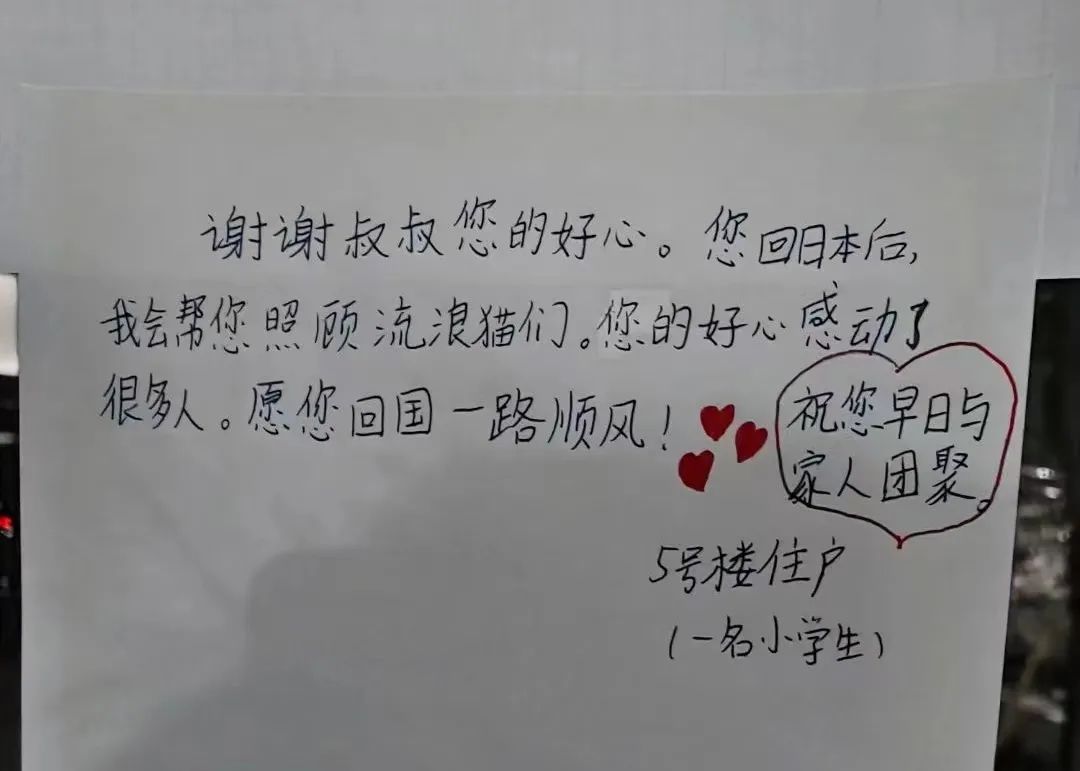 谢谢叔叔您的好心。您回日本后,
我会帮您照顾流浪猫们。您的好心感动了
很多人。愿您回国一路顺风!
祝您早日与
家人团聚。
5号楼住户
(一名小学生)